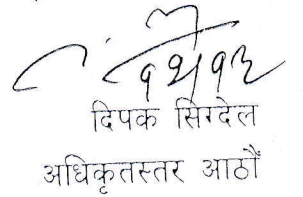 दिपक सिग्देल
अधिकृतस्तर आठौं